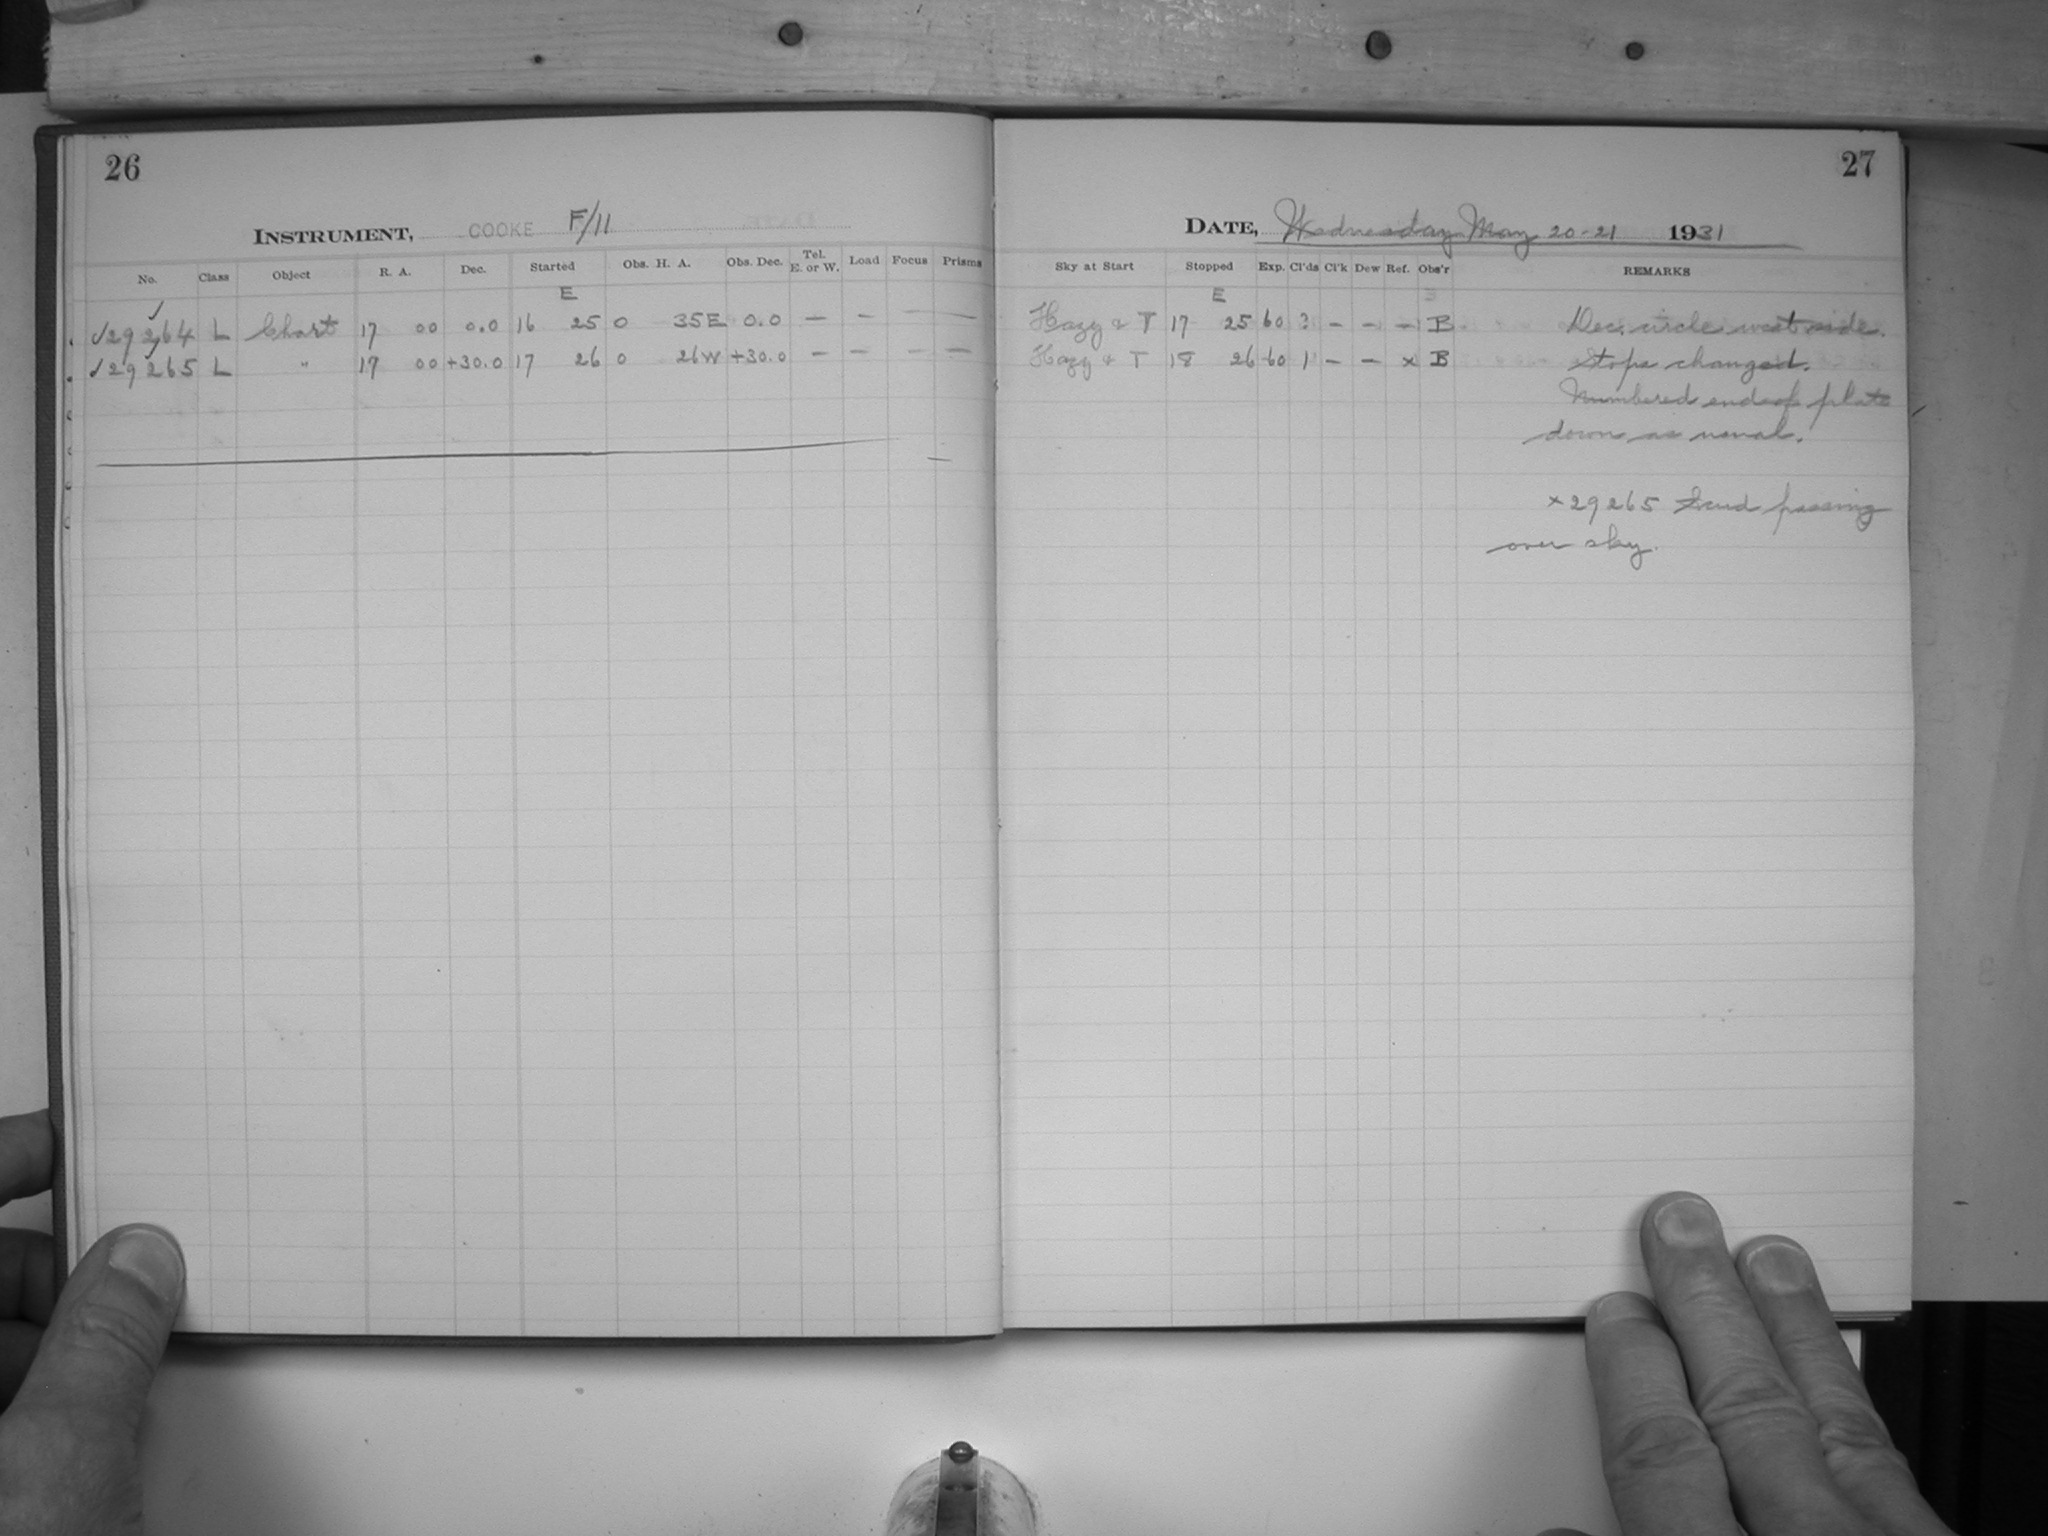 26
INSTRUMENT, COOKE F/11
No. Class Object R. A. Dec. Started Obs. H. A. Obs. Dec. Tel. E. or W. Load Focus Prisms
E
✓29264 L Chart 17 00 0.0 16 25 0 35E 0.0 — — — —
✓29265 L " 17 00 +30.0 17 26 0 26W +30.0 — — — —
27
DATE, Wednesday May 20-21 1931
Sky at Start Stopped Exp. Cl'ds Cl'k Dew Ref. Obs'r REMARKS
E
Hazy & T 17 25 60 ? — — — B Dec. circle west side.
Hazy & T 18 26 60 1 — — x B Stops changed.
Numbered end of plate
down as usual.
x 29265 Scud passing
over sky.